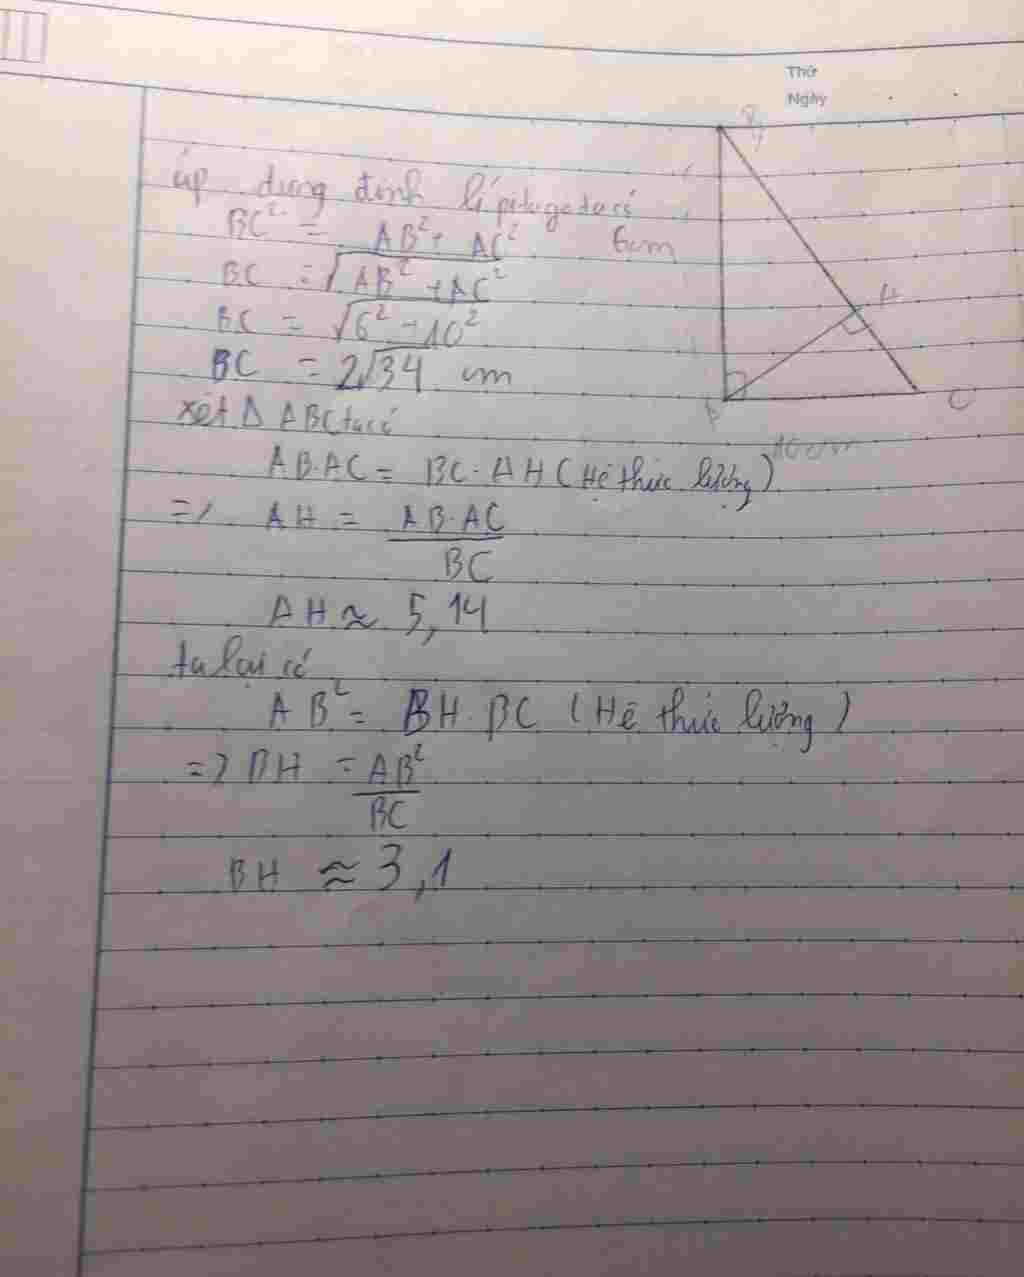 Thứ
Ngày
B
áp dụng định lí pitago ta có
BC² = AB² + AC²
6cm
BC = √AB² + AC²
H
BC = √6² + 10²
BC = 2√34 cm
A
C
xét Δ ABC ta có
10cm
AB.AC = BC.AH (Hệ thức lượng)
=> AH = AB.AC
BC
AH ≈ 5,14
ta lại có
AB² = BH.BC (Hệ thức lượng)
=> BH = AB²
BC
BH ≈ 3,1